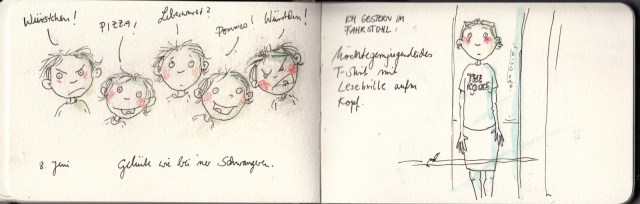 Würstchen!
PIZZA!
Leberwurst?
Pommes!
Würstchen!
8. Juni
Gelüste wie bei 'ner Schwangeren.
ICH GESTERN IM
FAHRSTUHL:
T-Shirt mit
Lesebrille aufm
Kopf.
THE